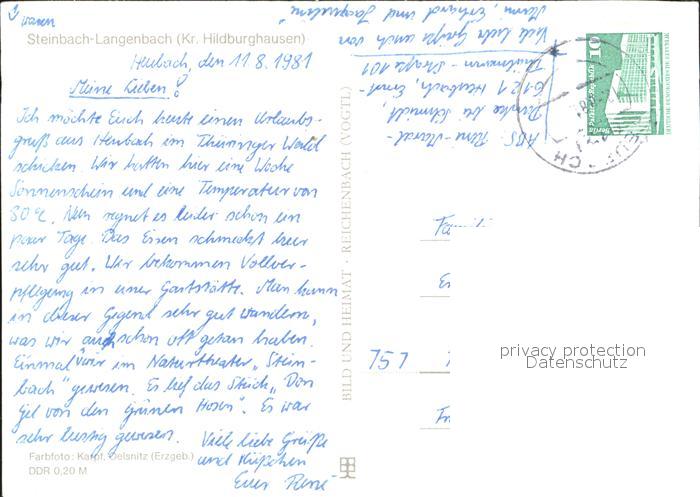 waren
Steinbach-Langenbach (Kr. Hildburghausen)
Heubach, den 11.8.1981
Meine Lieben!
Ich möchte Euch heute einen Urlaubs-
gruß aus Heubach im Thüringer Wald
schicken. Wir hatten hier eine Woche
Sonnenschein und eine Temperatur von
30°C. Nun regnet es leider schon ein
paar Tage. Das Essen schmeckt hier
sehr gut. Wir bekommen Vollver-
pflegung in einer Gaststätte. Man kann
in dieser Gegend sehr gut wandern,
was wir auch schon oft getan haben.
Einmal wir im Naturtheater „Stein-
bach" gewesen. Es lief das Stück „Don
Gil von den Grünen Hosen". Es war
sehr lustig gewesen. Viele liebe Grüße
und Küßchen
Euer René
Farbfoto: Karpf, Oelsnitz (Erzgeb.)
DDR 0,20 M
BILD UND HEIMAT · REICHENBACH (VOGTL)
Viele liebe Grüße auch von
Mami, Erhard und Jacqueline
ABS: René
bei Schmidt,
6121 Heubach, Ernst-
Thälmann-Straße 101
10
Berlin
757
privacy protection
Datenschutz